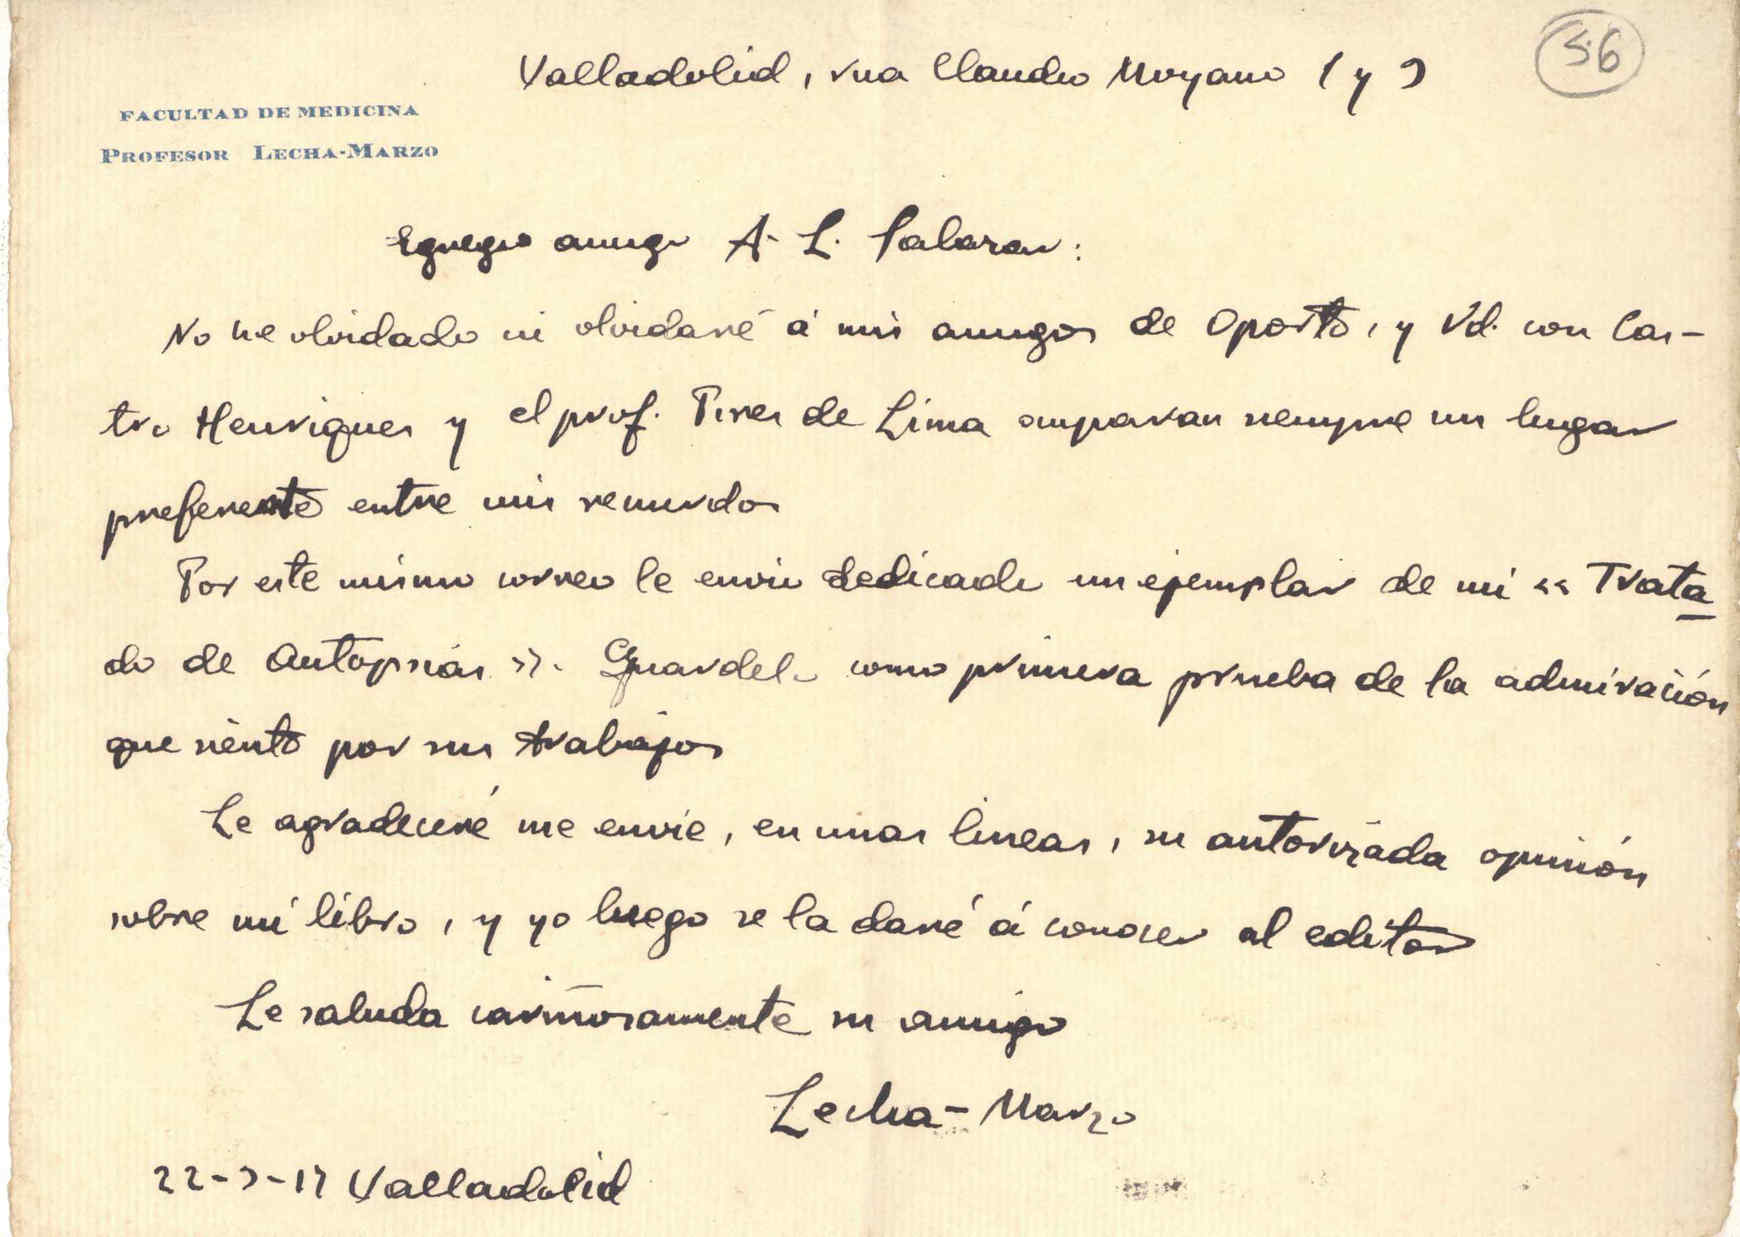 56
Valladolid, rua Claudio Moyano 1 y 3
FACULTAD DE MEDICINA
PROFESOR LECHA-MARZO
Egregio amigo A. L. Salazar:
No he olvidado ni olvidaré á mis amigos de Oporto, y Vd. con Cas-
tro Henriques y el prof. Pires de Lima ocuparan siempre un lugar
preferente entre mis recuerdos
Por este mismo correo le envio dedicado un ejemplar de mi << Trata
do de Autopsias >>. Guardelo como primera prueba de la admiración
que siento por sus trabajos
Le agradeceré me envie, en unas lineas, su autorizada opinión
sobre mi libro, y yo luego se la daré á conocer al editor
Le saluda cariñosamente su amigo
Lecha-Marzo
22-3-17 Valladolid